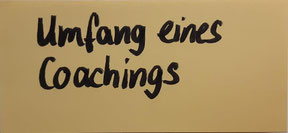 Umfang eines
Coachings